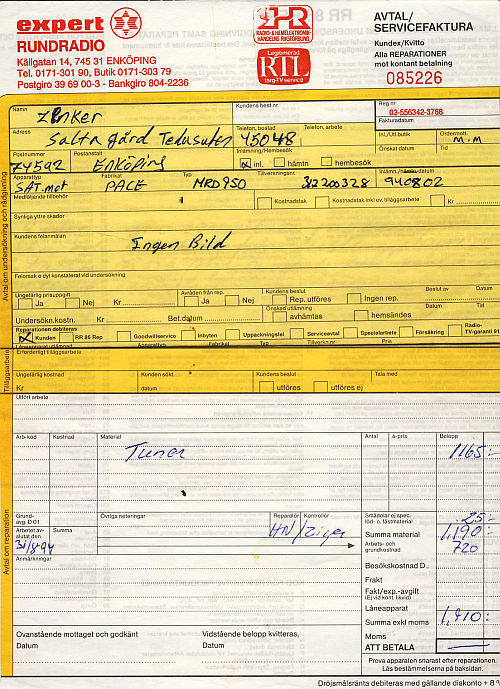 expert
RUNDRADIO
Källgatan 14, 745 31 ENKÖPING
Tel. 0171-301 90, Butik 0171-303 79
Postgiro 39 69 00-3 - Bankgiro 804-2236
RADIO- & HEMELEKTRONIK-
HANDELNS RIKSFÖRBUND
Legitimerad
RTL
larg-TV service
AVTAL/
SERVICEFAKTURA
Kundex/Kvitto
Alla REPARATIONER
mot kontant betalning
085226
Namn
Kundens best.nr.
Reg nr
03-556342-3788
Fakturadatum
Adress
Salta gård
Telefon, bostad
45048
Telefon, arbete
Inl./Utl.butik
Ordermott.
M.M
Postnummer
74592
Postanstalt
ENKÖPING
Inlämning/Hembesök
inl.
hämtn
hembesök
Önskat datum
Tid
Apparattyp
SAT.mot
Fabrikat
PACE
Typ
MRD 950
Tillverkningsnr.
312200328
940802
Medföljande tillbehör
Kostnadstak
Kostnadstak inkl ev. tilläggsarbete
Kr
Synliga yttre skador
Kundens felanmälan
Ingen Bild
Felorsak e dyl konstaterat vid undersökning
Avtal om undersökning och rådgivning
Ungefärlig prisuppgift
Ja
Nej
Kr
Avråden från rep.
Ja
Nej
Kundens beslut
Rep. utföres
Ingen rep.
Beslut av
Datum
Undersökn.kostn.
Kr
Bet.datum
Önskad utlämning
avhämtas
hemsändes
Datum
Tid
Reparationen debiteras
Kunden
RR 85 Rep
Goodwillservice
Inbyten
Uppackningsfel
Serviceavtal
Specialarbete
Försäkring
Radio-
TV-garanti 91
Låneapparat utlämnad
Apparattyp
Fabrikat
Typ
Tillverkn.nr
Pris
Tilläggsarbete
Erforderligt tilläggsarbete
Ungefärlig kostnad
Kr
Kunden sökt
datum
Kundens beslut
utföres
utföres ej
Tala med
Utfört arbete
Arb-kod
Kostnad
Material
Antal
à-pris
Belopp
Tuner
1165:-
Avtal om reparation
Grund-
avg. D 01
Övriga noteringar
Reparatör
Kontrollör
Smådelar ej spec.
löd- o. fästmaterial
25:-
Arbetet av-
slutat den
31/8-94
Summa
Summa material
1,190:-
Arbets- och
grundkostnad
720
Anmärkningar
Besökskostnad D
Frakt
Fakt/exp.-avgift
(Ej vid kont. likvid)
Låneapparat
Summa exkl moms
1,910:-
Moms
ATT BETALA
Ovanstående mottaget och godkänt
Datum
Vidstående belopp kvitteras,
Datum
Prova apparaten snarast efter reparationen.
Läs bestämmelserna på baksidan.
Dröjsmålsränta debiteras med gällande diskonto + 8 %